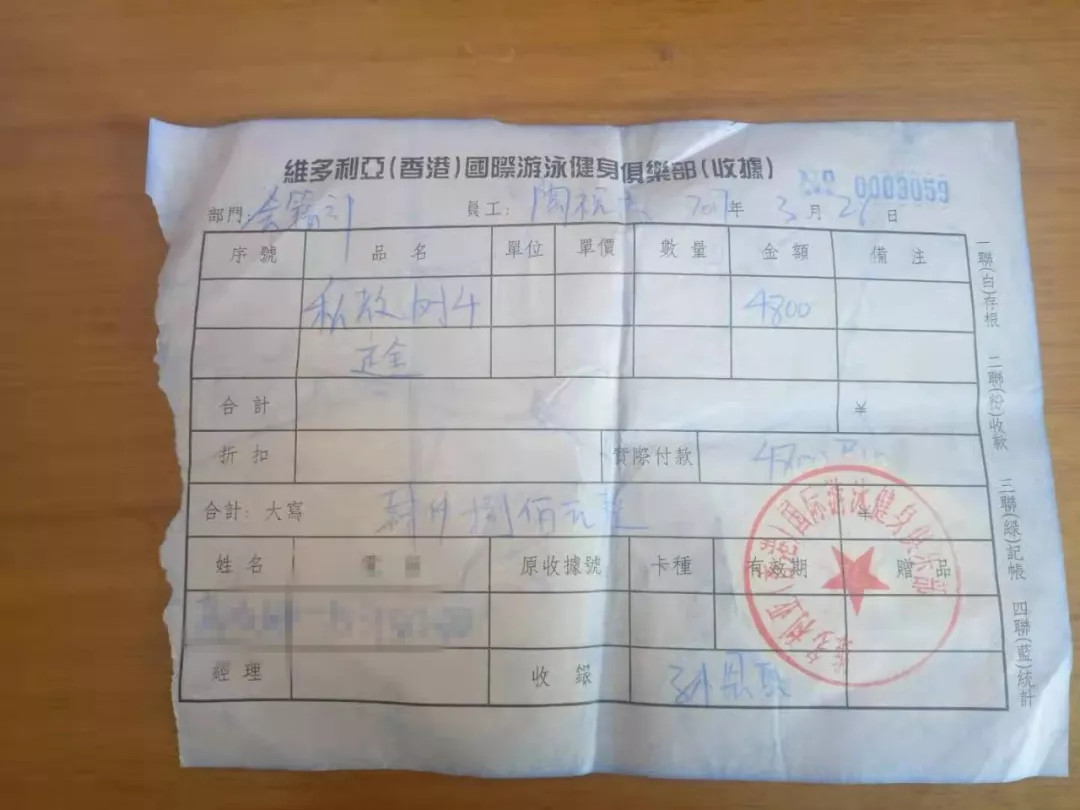 維多利亞(香港)國際游泳健身俱樂部(收據)
No 0003059
部門: 員工: 2017年3月29日
序號 品名 單位 單價 數量 金額 備注
私教 4800
定金
合計 ¥
折扣 實際付款 4800
合計: 大寫 捌佰元整 ¥
姓名 電話 原收據號 卡種 有效期 贈品
經理 收銀
一聯(白)存根 二聯(粉)收款 三聯(綠)記帳 四聯(藍)統計
维多利亚(香港)国际游泳健身俱乐部